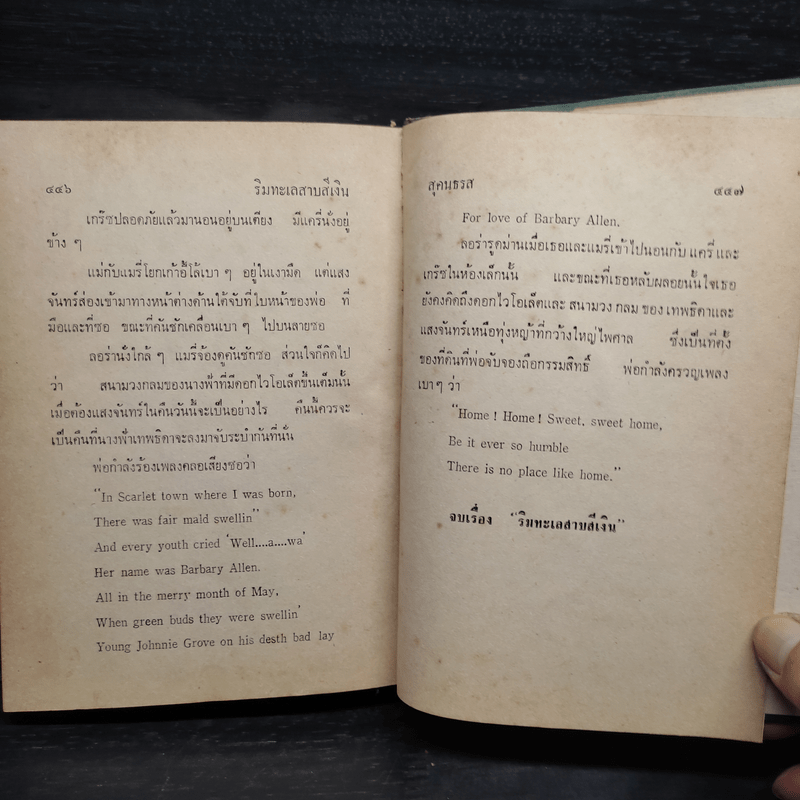 ๔๔๖ ริมทะเลสาบสีเงิน
เกร๊ซปลอดภัยแล้วมานอนอยู่บนเตียง มีแครี่นั่งอยู่
ข้าง ๆ
แม่กับแมรี่โยกเก้าอี้โล้เบา ๆ อยู่ในเงามืด แต่แสง
จันทร์ส่องเข้ามาทางหน้าต่างด้านใต้จับที่ใบหน้าของพ่อ ที่
มือและที่ซอ ขณะที่คันชักเคลื่อนเบา ๆ ไปบนสายซอ
ลอร่านั่งใกล้ ๆ แมรี่จ้องดูคันชักซอ ส่วนใจก็คิดไป
ว่า สนามวงกลมของนางฟ้าที่มีดอกไวโอเล็ตขึ้นเต็มนั้น
เมื่อต้องแสงจันทร์ในคืนวันนี้จะเป็นอย่างไร คืนนี้ควรจะ
เป็นคืนที่นางฟ้าเทพธิดาจะลงมาจับระบำกันที่นั่น
พ่อกำลังร้องเพลงคลอเสียงซอว่า
"In Scarlet town where I was born,
There was fair mald swellin"
And every youth cried 'Well....a....wa'
Her name was Barbary Allen.
All in the merry month of May,
When green buds they were swellin'
Young Johnnie Grove on his desth bad lay
สุคนธรส ๔๔๗
For love of Barbary Allen.
ลอร่ารูดม่านเมื่อเธอและแมรี่เข้าไปนอนกับ แครี่ และ
เกร๊ซในห้องเล็กนั้น และขณะที่เธอหลับผลอยนั้นใจเธอ
ยังคงคิดถึงดอกไวโอเล็ตและ สนามวง กลม ของ เทพธิดาและ
แสงจันทร์เหนือทุ่งหญ้าที่กว้างใหญ่ไพศาล ซึ่งเป็นที่ตั้ง
ของที่ดินที่พ่อจับจองถือกรรมสิทธิ์ พ่อกำลังครวญเพลง
เบาๆ ว่า
"Home ! Home ! Sweet, sweet home,
Be it ever so humble
There is no place like home."
จบเรื่อง "ริมทะเลสาบสีเงิน"